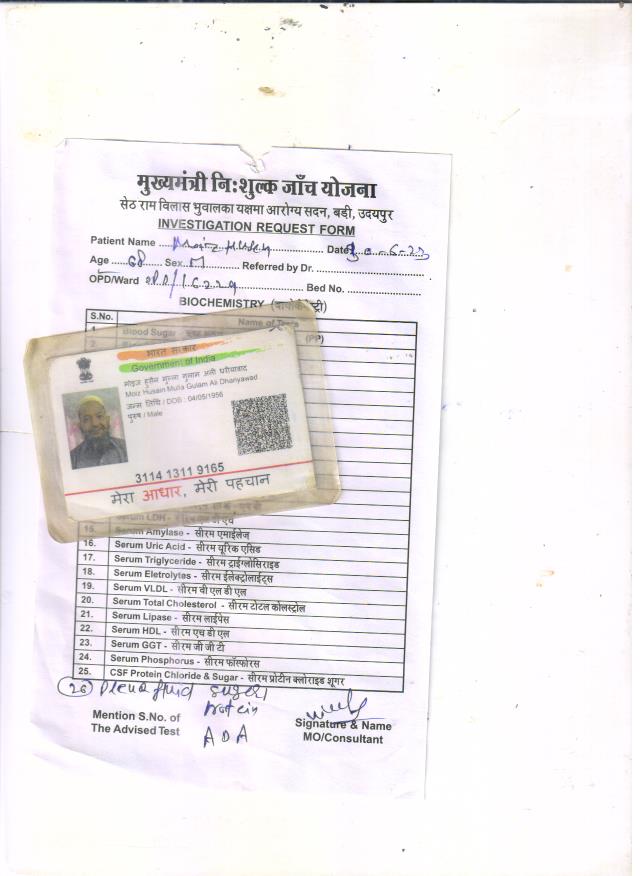 मुख्यमंत्री नि:शुल्क जाँच योजना
सेठ राम विलास भुवालका यक्षमा आरोग्य सदन, बडी, उदयपुर
INVESTIGATION REQUEST FORM
Patient Name ............ Date ....-6-23
Age 68 Sex M Referred by Dr. ............
OPD/Ward OPD/16229 Bed No. ............
BIOCHEMISTRY
S.No. Name of Tests
1. Blood Sugar - (PP)
2.
भारत सरकार
Government of India
मोइज हुसैन मुल्ला गुलाम अली
Moiz Husain Mulla Gulam Ali Dhanyawad
जन्म तिथि / DOB : 04/05/1956
पुरुष / Male
3114 1311 9165
मेरा आधार, मेरी पहचान
Serum LDH -
15. Serum Amylase - सीरम एमाईलेज
16. Serum Uric Acid - सीरम यूरिक एसिड
17. Serum Triglyceride - सीरम ट्राईग्लोसिराइड
18. Serum Eletrolytes - सीरम ईलेक्ट्रोलाईट्स
19. Serum VLDL - सीरम वी एल डी एल
20. Serum Total Cholesterol - सीरम टोटल कोलस्ट्रोल
21. Serum Lipase - सीरम लाईपेस
22. Serum HDL - सीरम एच डी एल
23. Serum GGT - सीरम जी जी टी
24. Serum Phosphorus - सीरम फॉस्फोरस
25. CSF Protein Chloride & Sugar - सीरम प्रोटीन क्लोराइड शूगर
26 fluid sugar
protein
ADA
Mention S.No. of
The Advised Test
Signature & Name
MO/Consultant